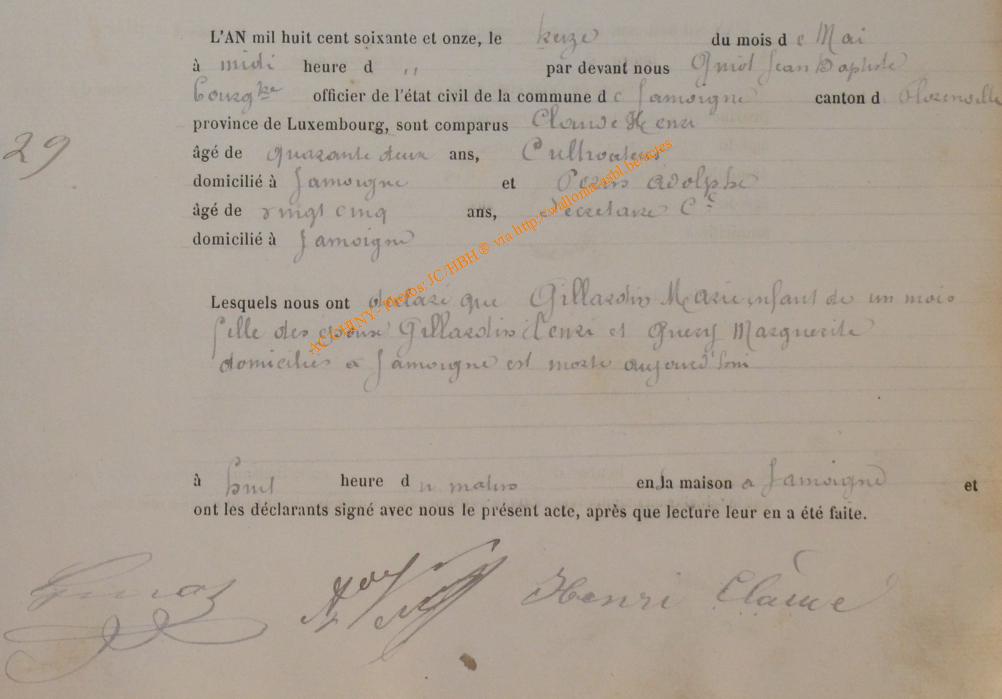 L'AN mil huit cent soixante et onze, le treize du mois de Mai
à midi heure d ,, par devant nous Guiot Jean Baptiste
Bourg^tre officier de l'état civil de la commune de Jamoigne canton d Florenville
province de Luxembourg, sont comparus Claude Henri
29
âgé de quarante deux ans, Cultivateur
domicilié à Jamoigne et Perin Adolphe
âgé de vingt cinq ans, Secrétaire C^l
domicilié à Jamoigne
Lesquels nous ont déclaré que Gillardin Marie enfant de un mois
fille des époux Gillardin Henri et Guery Marguerite
domiciliés à Jamoigne est morte aujourd'hui
à huit heure du matin en sa maison à Jamoigne et
ont les déclarants signé avec nous le présent acte, après que lecture leur en a été faite.
Henri Claude
ACGHINY - Photos: JC HBH® via http://wallonia-asbl.be/actes